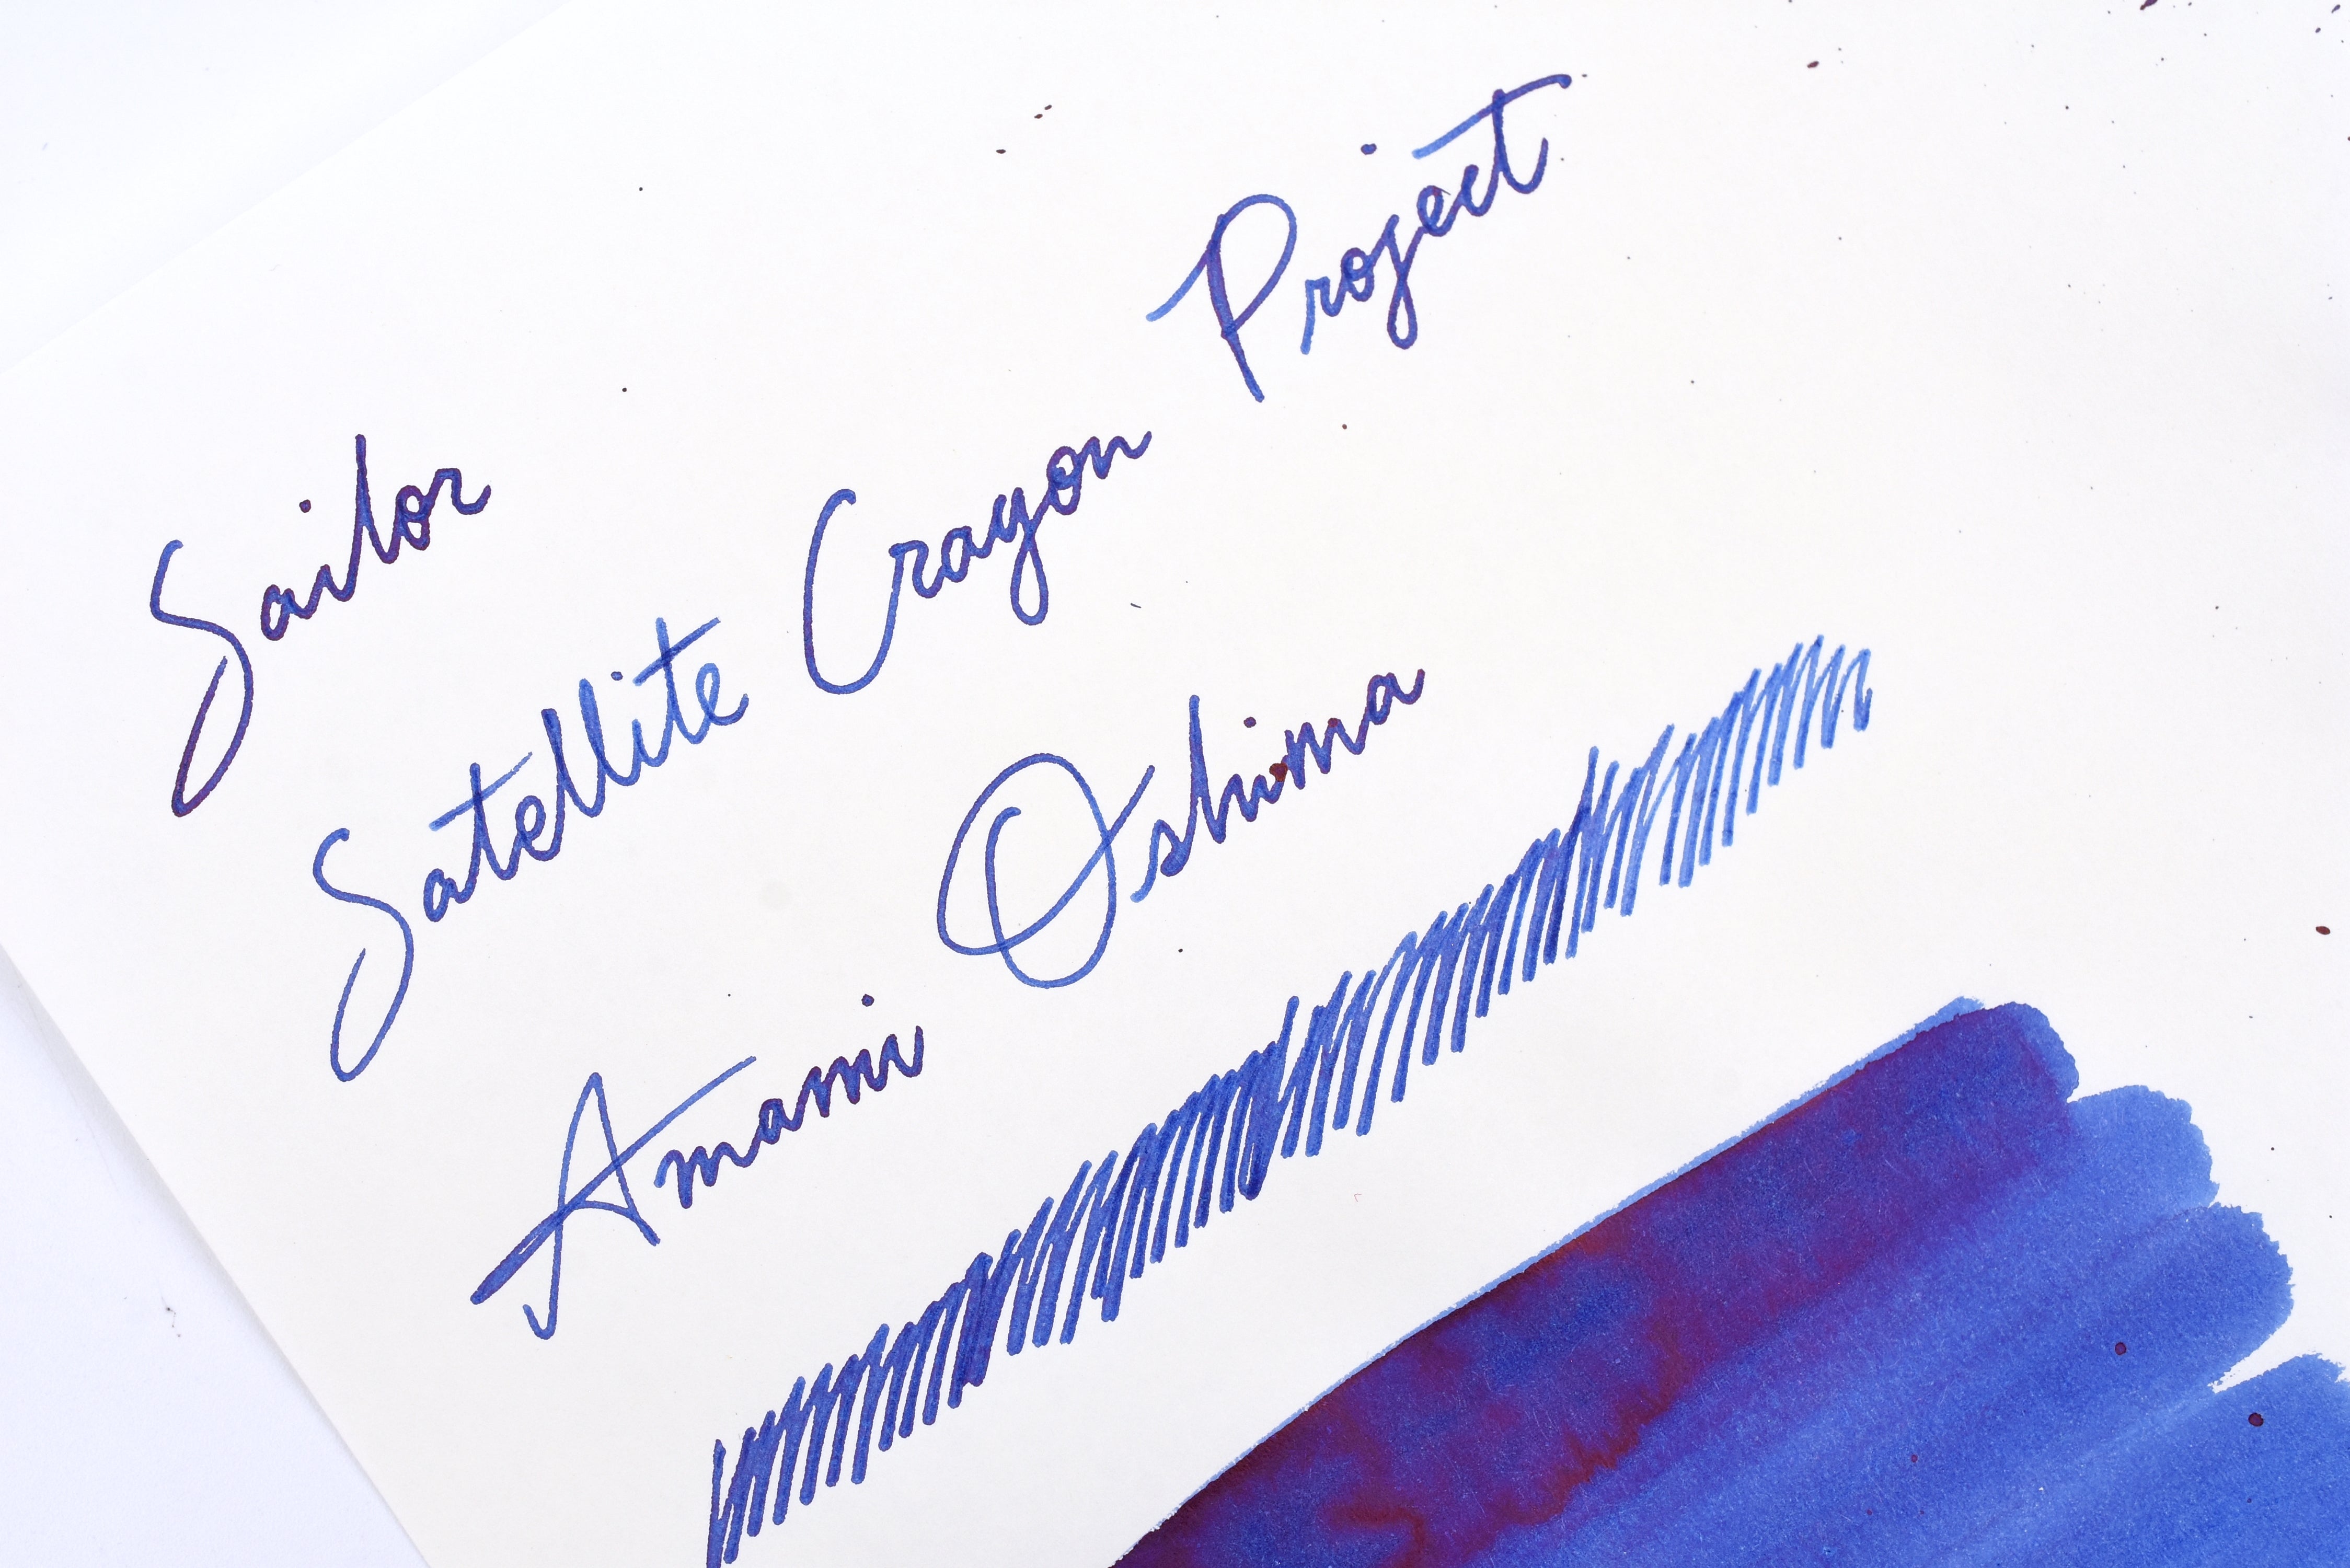 Sailor
Satellite Crayon Project
Amami Oshima